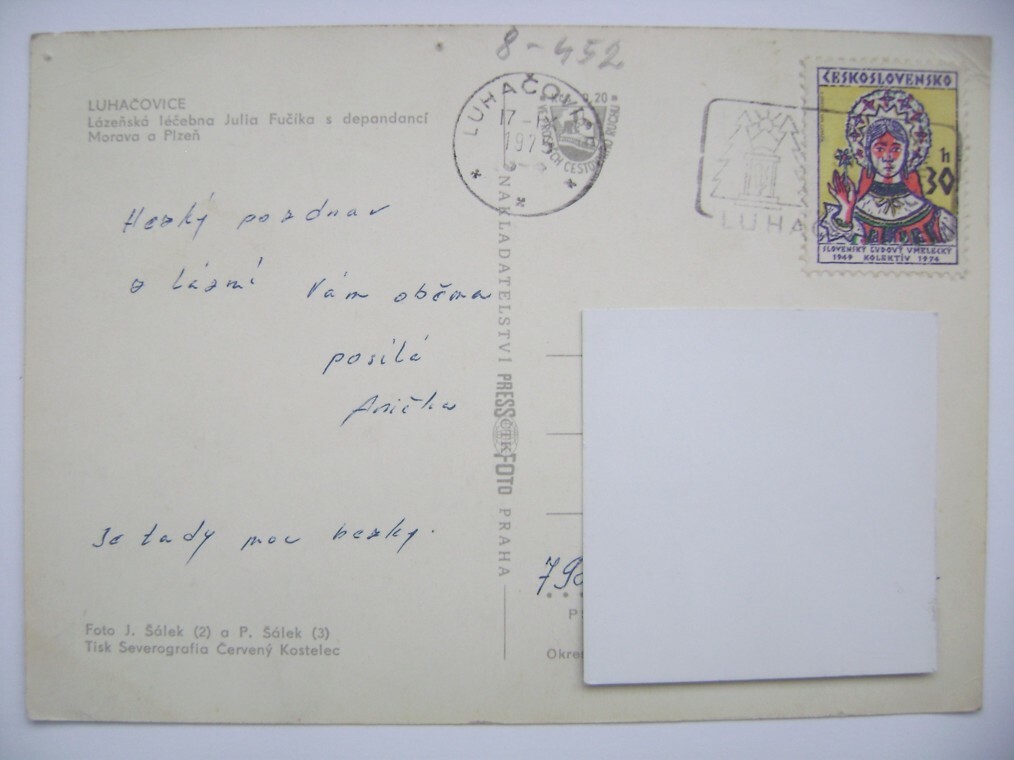 8-452
LUHAČOVICE
Lázeňská léčebna Julia Fučíka s depandancí
Morava a Plzeň
LUHAČOVICE
17-
1975
ČESKOSLOVENSKO
30 h
SLOVENSKÝ ĽUDOVÝ UMELECKÝ
1949 KOLEKTÍV 1974
LUHAČ
Hezký pozdrav
z lázní Vám oběma
posílá
Anička
Je tady moc hezky.
NAKLADATELSTVÍ PRESSFOTO PRAHA
ČTK
790
Foto J. Šálek (2) a P. Šálek (3)
Tisk Severografia Červený Kostelec
Okres